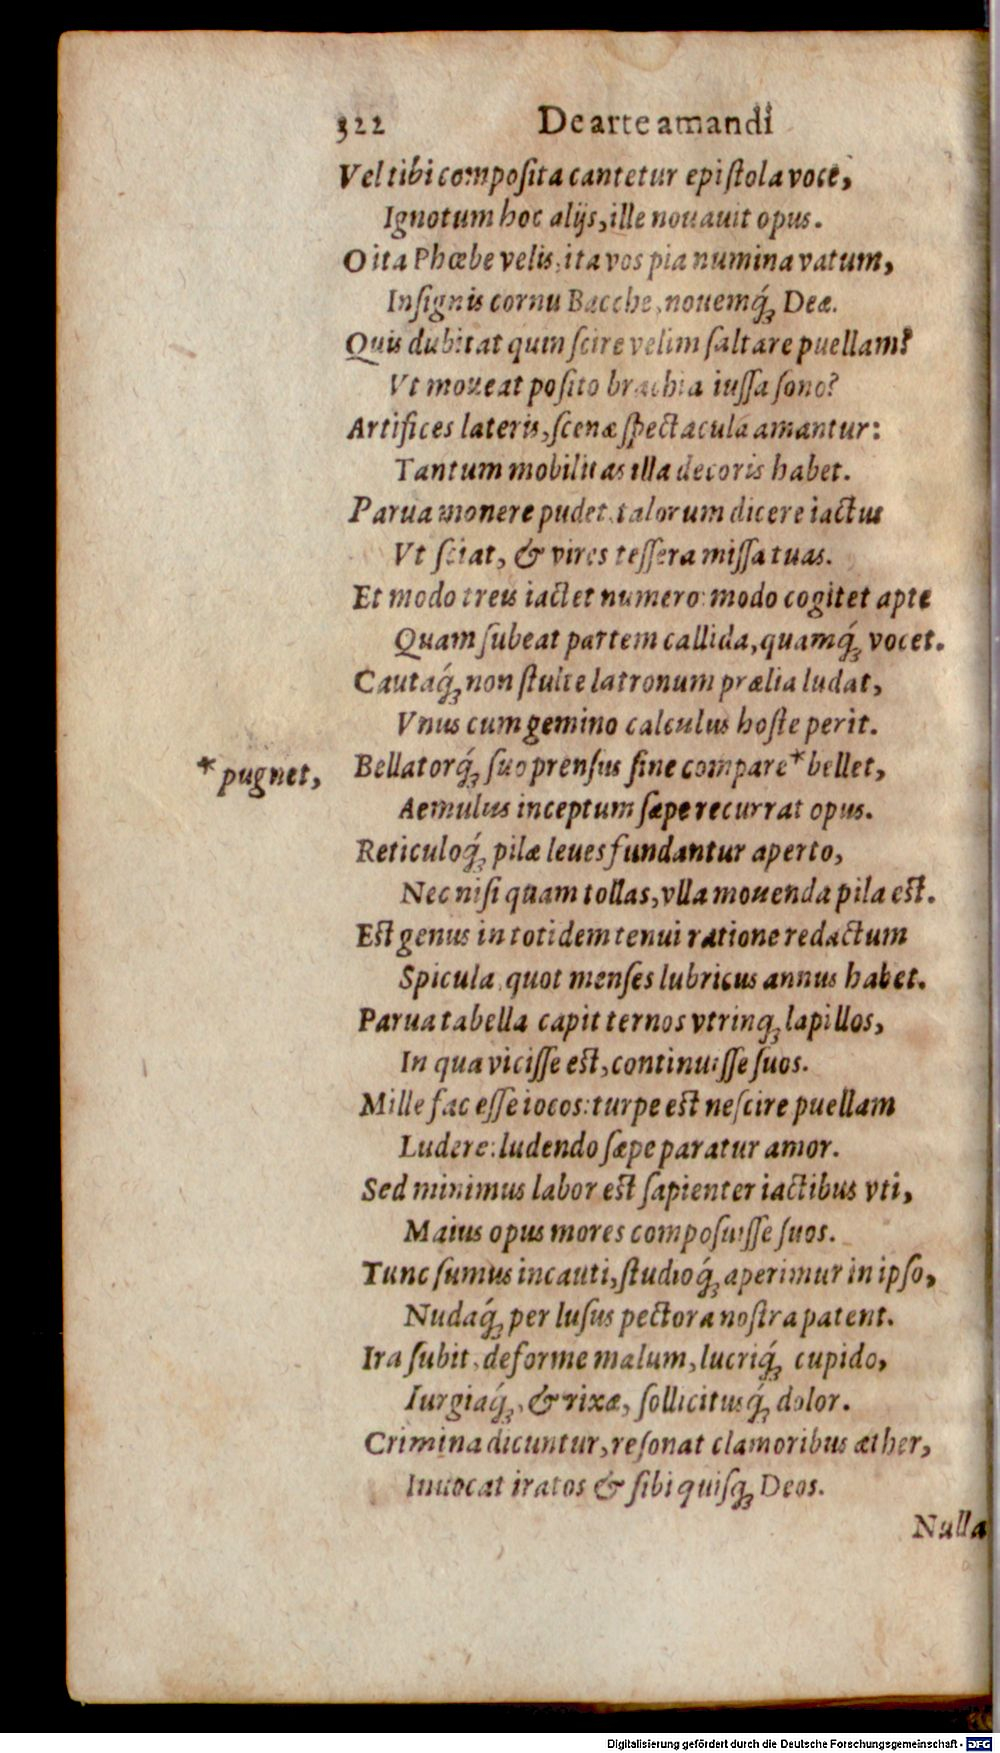 322 De arte amandi
Vel tibi composita cantetur epistola voce,
Ignotum hoc alijs, ille nouauit opus.
O ita Phœbe velis, ita vos pia numina vatum,
Insignis cornu Bacche, nouemq́; Deæ.
Quis dubitat quin scire velim saltare puellam?
Vt moueat posito brachia iussa sono?
Artifices lateris, scenæ spectacula amantur:
Tantum mobilitas illa decoris habet.
Parua monere pudet, talorum dicere iactus
Vt sciat, & vires tessera missa tuas.
Et modo treis iactet numero: modo cogitet apte
Quam subeat partem callida, quamq́; vocet.
Cautaq́; non stulte latronum prælia ludat,
Vnus cum gemino calculus hoste perit.
* pugnet, Bellatorq́; suo prensus sine compare * bellet,
Aemulus inceptum sæpe recurrat opus.
Reticuloq́; pilæ leues fundantur aperto,
Nec nisi quam tollas, vlla mouenda pila est.
Est genus in totidem tenui ratione redactum
Spicula, quot menses lubricus annus habet.
Parua tabella capit ternos vtrinq; lapillos,
In qua vicisse est, continuisse suos.
Mille fac esse iocos: turpe est nescire puellam
Ludere: ludendo sæpe paratur amor.
Sed minimus labor est sapienter iactibus vti,
Maius opus mores composuisse suos.
Tunc sumus incauti, studioq́; aperimur in ipso,
Nudaq́; per lusus pectora nostra patent.
Ira subit, deforme malum, lucriq́; cupido,
Iurgiaq́;, & rixæ, sollicitusq́; dolor.
Crimina dicuntur, resonat clamoribus æther,
Inuocat iratos & sibi quisq; Deos.
Nulla
Digitalisierung gefördert durch die Deutsche Forschungsgemeinschaft - DFG